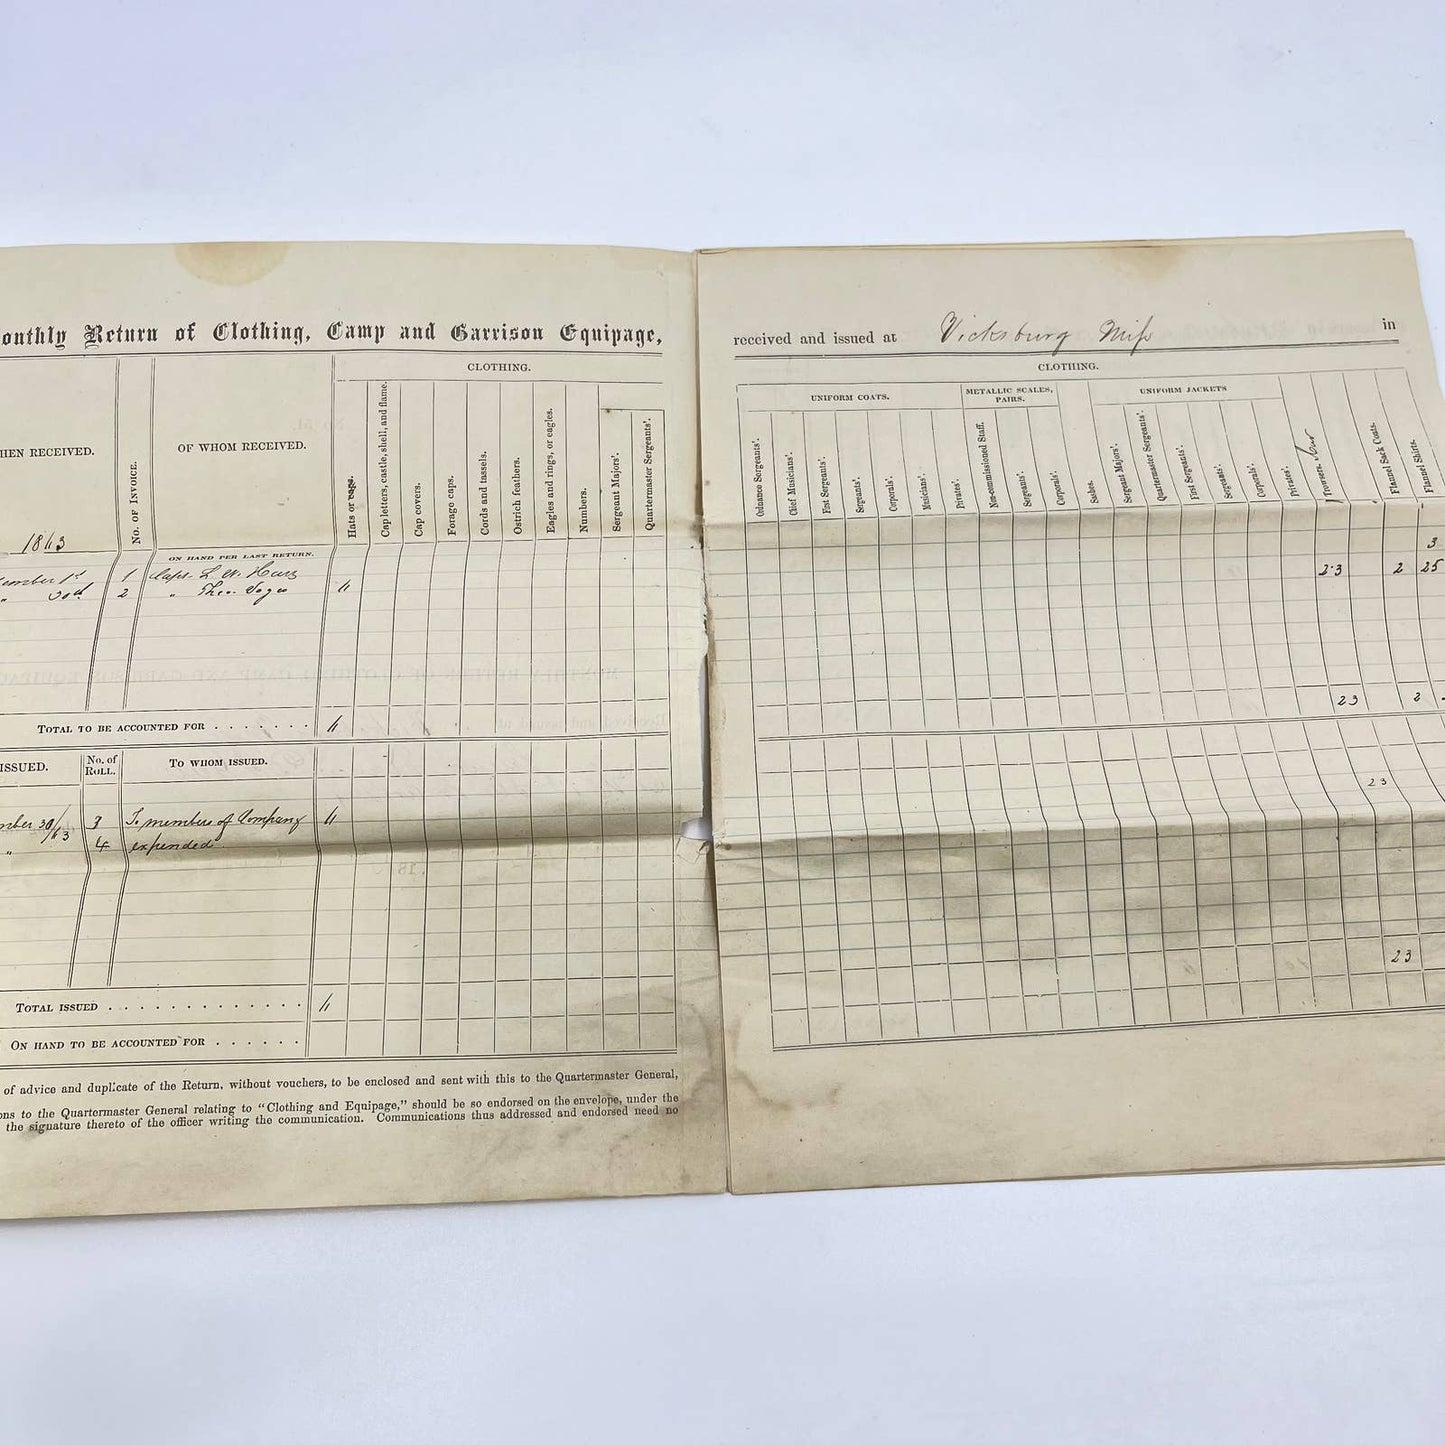 onthly Return of Clothing, Camp and Garrison Equipage,
CLOTHING.
HEN RECEIVED.
No. of Invoice.
OF WHOM RECEIVED.
Hats or caps.
Cap letters, castle, shell, and flame.
Cap covers.
Forage caps.
Cords and tassels.
Ostrich feathers.
Eagles and rings, or eagles.
Numbers.
Sergeant Majors'.
Quartermaster Sergeants'.
1863
ON HAND PER LAST RETURN.
ember 1st 1 Capt. L. W.
" 2 " Theo. 11
TOTAL TO BE ACCOUNTED FOR 11
ISSUED.
No. of ROLL.
TO WHOM ISSUED.
mber 30/63 3 To members of Company 11
" 4 expended
TOTAL ISSUED 11
ON HAND TO BE ACCOUNTED FOR
of advice and duplicate of the Return, without vouchers, to be enclosed and sent with this to the Quartermaster General,
ons to the Quartermaster General relating to "Clothing and Equipage," should be so endorsed on the envelope, under the
the signature thereto of the officer writing the communication. Communications thus addressed and endorsed need no
received and issued at Vicksburg Miss in
CLOTHING.
UNIFORM COATS.
METALLIC SCALES, PAIRS.
UNIFORM JACKETS
Ordnance Sergeants'.
Chief Musicians'.
First Sergeants'.
Sergeants'.
Corporals'.
Musicians'.
Privates'.
Non-commissioned Staff.
Sergeants'.
Corporals'.
Sashes.
Sergeant Majors'.
Quartermaster Sergeants'.
First Sergeants'.
Sergeants'.
Corporals'.
Privates'.
Trowsers.
Flannel Sack Coats.
Flannel Shirts.
3
23 2 25
23 2
23
23